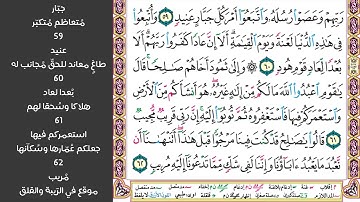 رَبِّهِمْ وَعَصَوْا۟ رُسُلَهُۥ وَٱتَّبَعُوٓا۟ أَمْرَ كُلِّ جَبَّارٍ عَنِيدٍ ٥٩ وَأُتْبِعُوا۟
فِى هَٰذِهِ ٱلدُّنْيَا لَعْنَةً وَيَوْمَ ٱلْقِيَٰمَةِ أَلَآ إِنَّ عَادًا كَفَرُوا۟ رَبَّهُمْ أَلَا
بُعْدًا لِّعَادٍ قَوْمِ هُودٍ ٦٠ وَإِلَىٰ ثَمُودَ أَخَاهُمْ صَٰلِحًا قَالَ
يَٰقَوْمِ ٱعْبُدُوا۟ ٱللَّهَ مَا لَكُم مِّنْ إِلَٰهٍ غَيْرُهُۥ هُوَ أَنشَأَكُم مِّنَ ٱلْأَرْضِ
وَٱسْتَعْمَرَكُمْ فِيهَا فَٱسْتَغْفِرُوهُ ثُمَّ تُوبُوٓا۟ إِلَيْهِ إِنَّ رَبِّى قَرِيبٌ مُّجِيبٌ ٦١
قَالُوا۟ يَٰصَٰلِحُ قَدْ كُنتَ فِينَا مَرْجُوًّا قَبْلَ هَٰذَآ أَتَنْهَىٰنَآ أَن
نَّعْبُدَ مَا يَعْبُدُ ءَابَآؤُنَا وَإِنَّنَا لَفِى شَكٍّ مِّمَّا تَدْعُونَآ إِلَيْهِ مُرِيبٍ ٦٢
جبّار
مُتعاظم مُتكبّر
59
عنيد
طاغٍ معاند للحقّ مُجانب له
60
بُعدا لعاد
هلاكا وسُحقا لهم
61
استعمركم فيها
جعلكم عُمّارها وسُكّانها
62
مُريب
موقع في الرّيبة والقلق